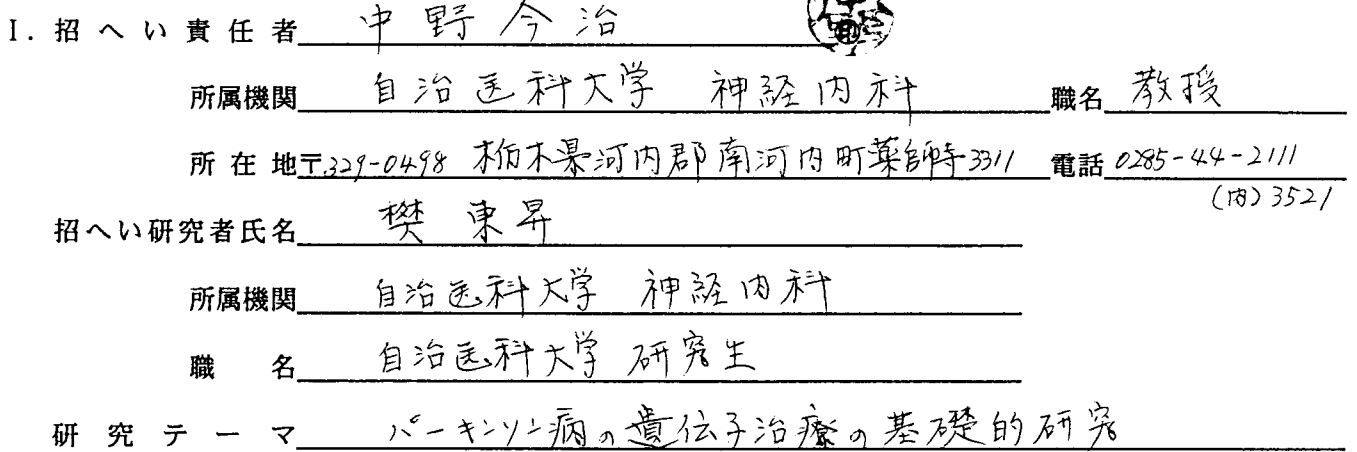 I. 招へい責任者 中野今治 印
所属機関 自治医科大学 神経内科 職名 教授
所在地〒329-0498 栃木県河内郡南河内町薬師寺3311 電話 0285-44-2111
(内) 3521
招へい研究者氏名 樊東昇
所属機関 自治医科大学 神経内科
職名 自治医科大学 研究生
研究テーマ パーキンソン病の遺伝子治療の基礎的研究